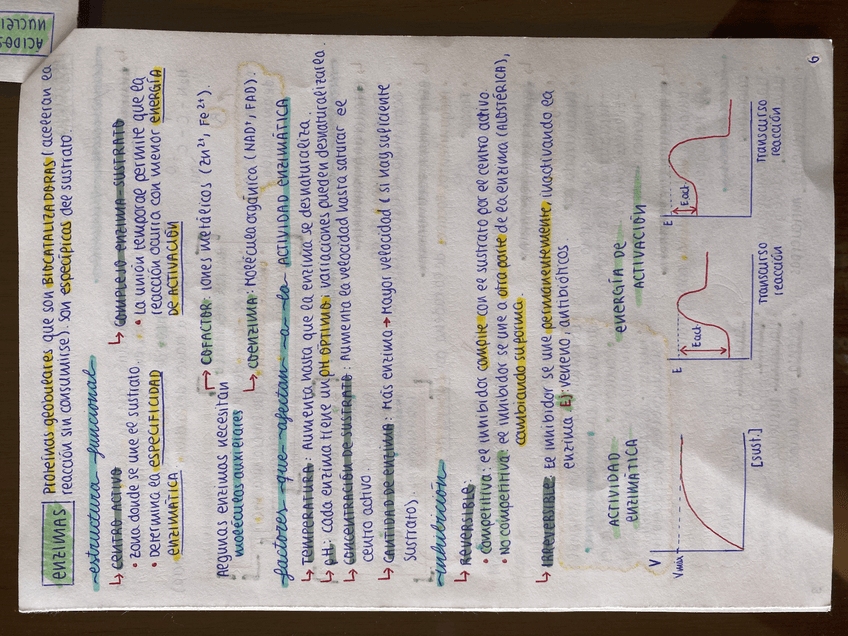 ACIDOS
NUCLEI
ENZIMAS
Proteínas globulares que son BIOCATALIZADORAS (aceleran la
reacción sin consumirse). Son específicas del sustrato.
estructura funcional
↳ CENTRO ACTIVO
• Zona donde se une el sustrato
• Determina la ESPECIFICIDAD
ENZIMÁTICA
↳ COMPLEJO ENZIMA-SUSTRATO
• La unión temporal permite que la
reacción ocurra con menor ENERGÍA
DE ACTIVACIÓN
Algunas enzimas necesitan
moléculas auxiliares
COFACTOR: Iones metálicos (Zn²⁺, Fe²⁺).
↳ COENZIMA: Molécula orgánica (NAD⁺, FAD).
factores que afectan a la ACTIVIDAD ENZIMÁTICA
↳ TEMPERATURA: Aumenta hasta que la enzima se desnaturaliza.
↳ pH: cada enzima tiene un pH ÓPTIMO; variaciones pueden desnaturalizarla.
↳ CONCENTRACIÓN DE SUSTRATO: Aumenta la velocidad hasta saturar el
centro activo.
↳ CANTIDAD DE ENZIMA: Más enzima → Mayor velocidad (si hay suficiente
sustrato).
inhibición
↳ REVERSIBLE:
• Competitiva: el inhibidor compite con el sustrato por el centro activo.
• No competitiva: el inhibidor se une a otra parte de la enzima (ALOSTÉRICA),
cambiando su forma.
↳ IRREVERSIBLE: El inhibidor se une permanentemente, inactivando la
enzima. Ej: veneno, antibióticos
ACTIVIDAD
ENZIMÁTICA
ENERGÍA DE
ACTIVACIÓN
V
Vmáx
[sust.]
E
Eact.
Transcurso
reacción
E
Eact.
Transcurso
reacción
6